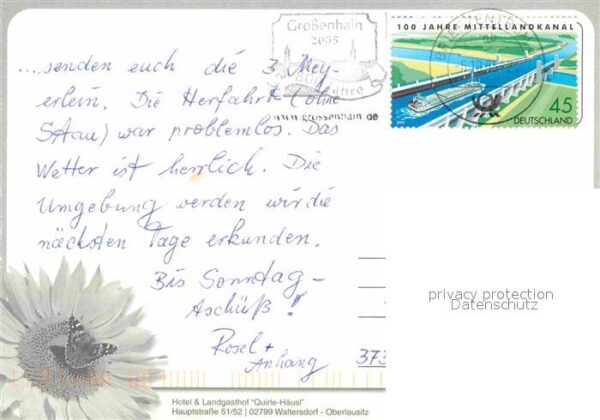 Großenhain
2005
100 JAHRE MITTELLANDKANAL
BRIEFZENTRUM
45
DEUTSCHLAND
Jahre
www.grossenhain.de
....senden euch die 3 Mey-
erlein. Die Herfahrt (ohne
Stau) war problemlos. Das
Wetter ist herrlich. Die
Umgebung werden wir die
nächsten Tage erkunden.
Bis Sonntag –
Aschüß!!
Rosel +
Anhang
373
privacy protection
Datenschutz
Hotel & Landgasthof "Quirle-Häusl"
Hauptstraße 51/52 | 02799 Waltersdorf - Oberlausitz